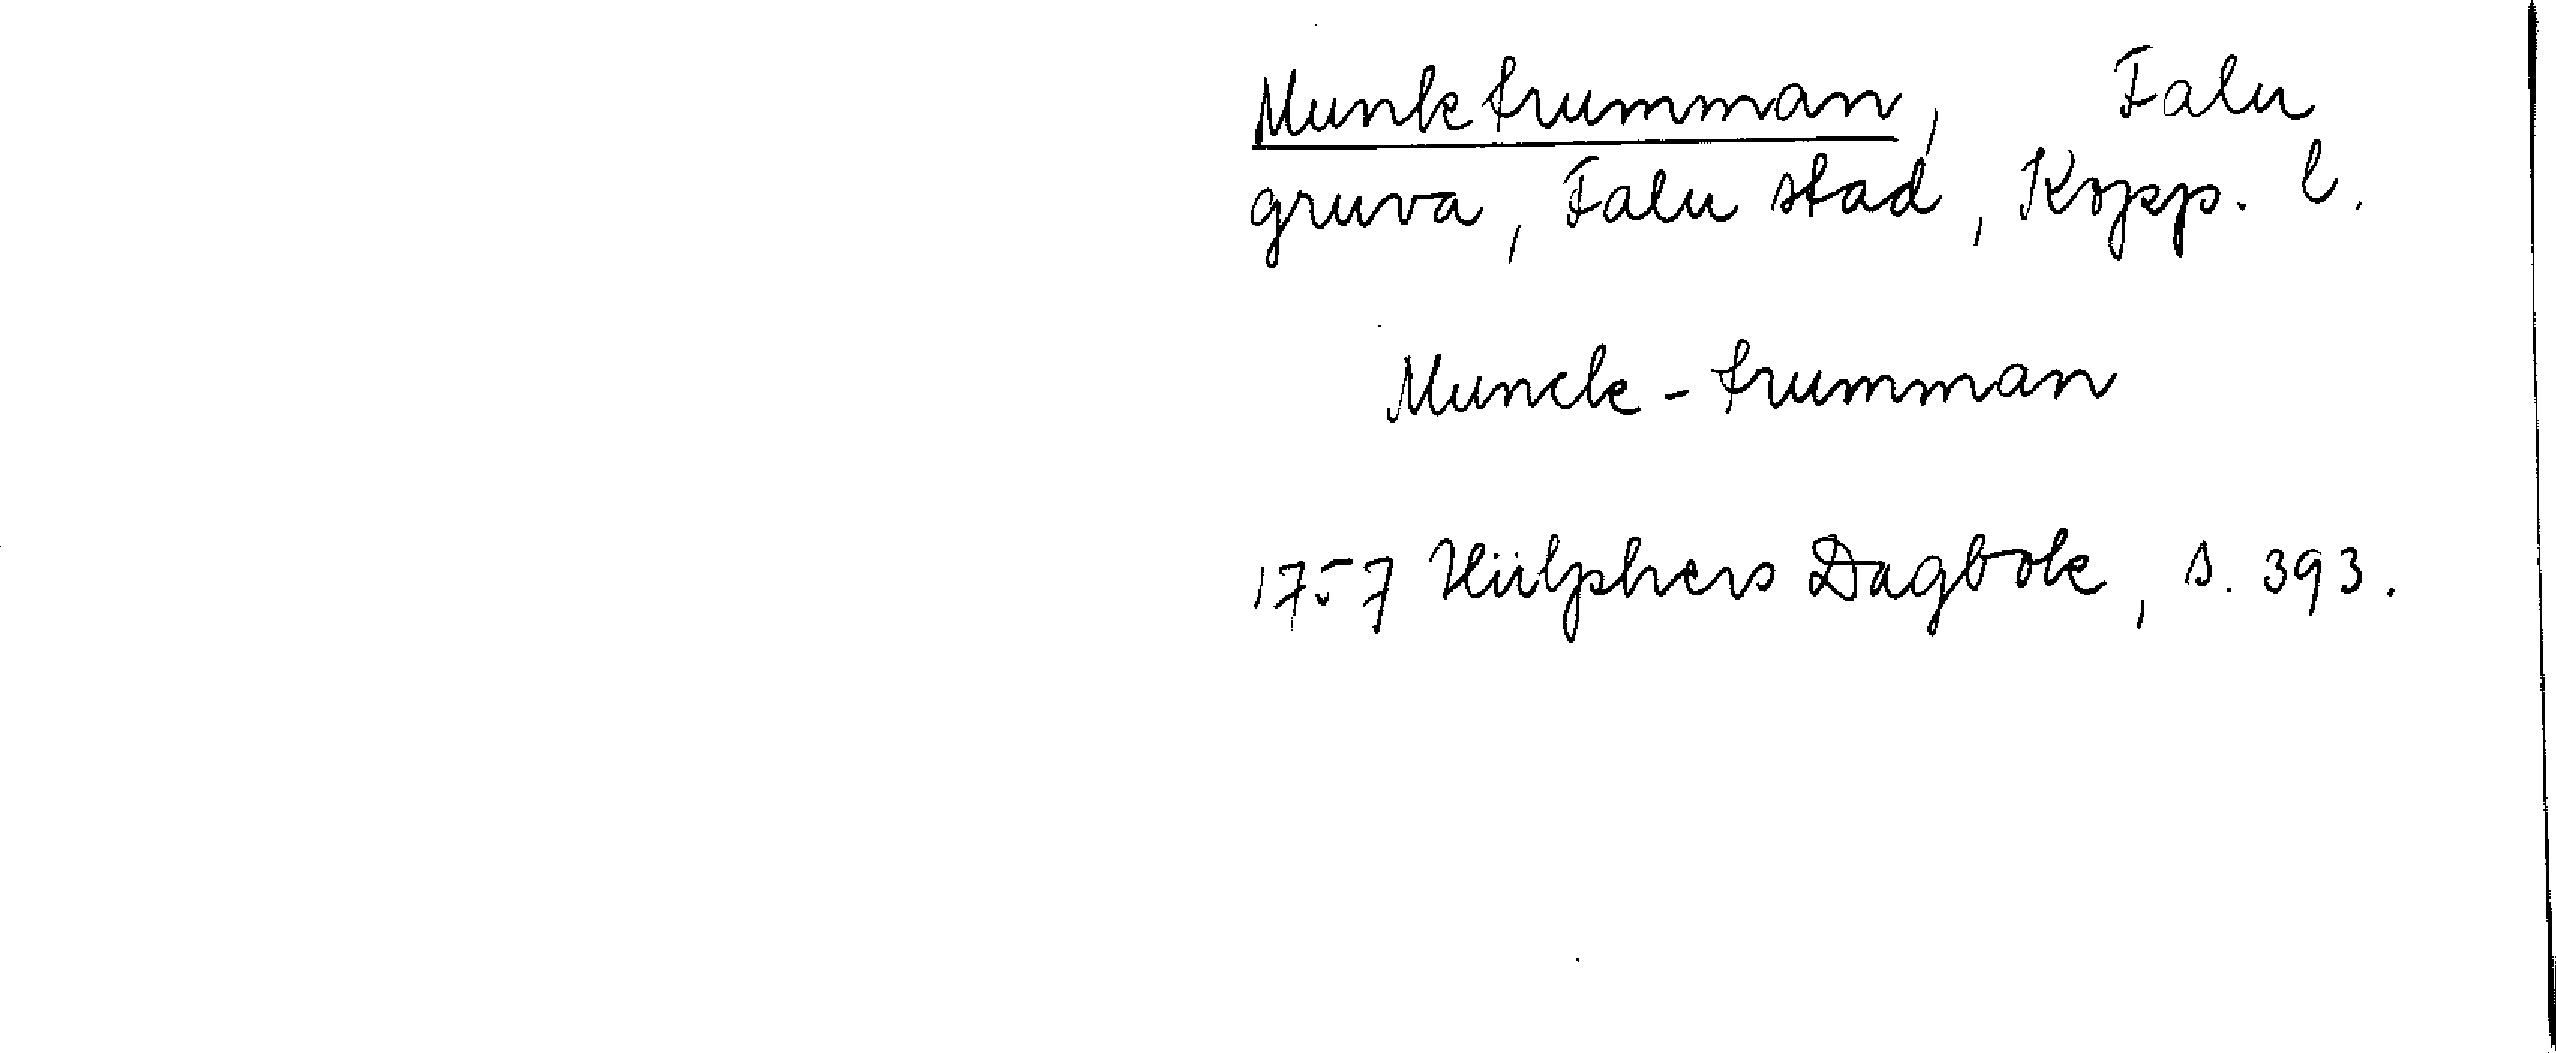 Munktrumman, Falu
gruva, Falu stad, Kopp. l.
Munck-trumman
1757 Hülphers Dagbok, s. 393.